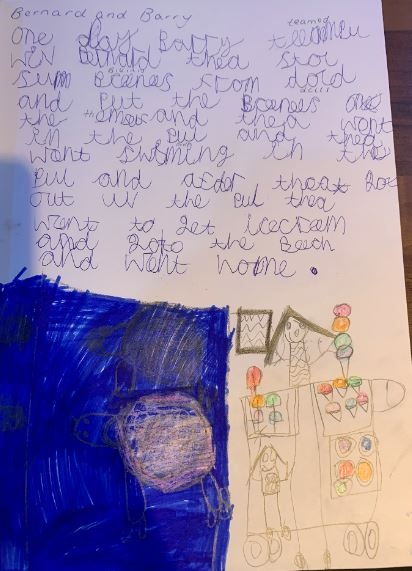 Bernard and Barry
teamed
One day Barry
wiv Bernard thea stol
sum Bcenees from dold
and put the Bceenees one
the themselves and thea wont
in the Pul and thea
went swiming in the
Pul and arder theat got
out uv the Pul thea
went to get icecream
and goto the Beach
and went home .